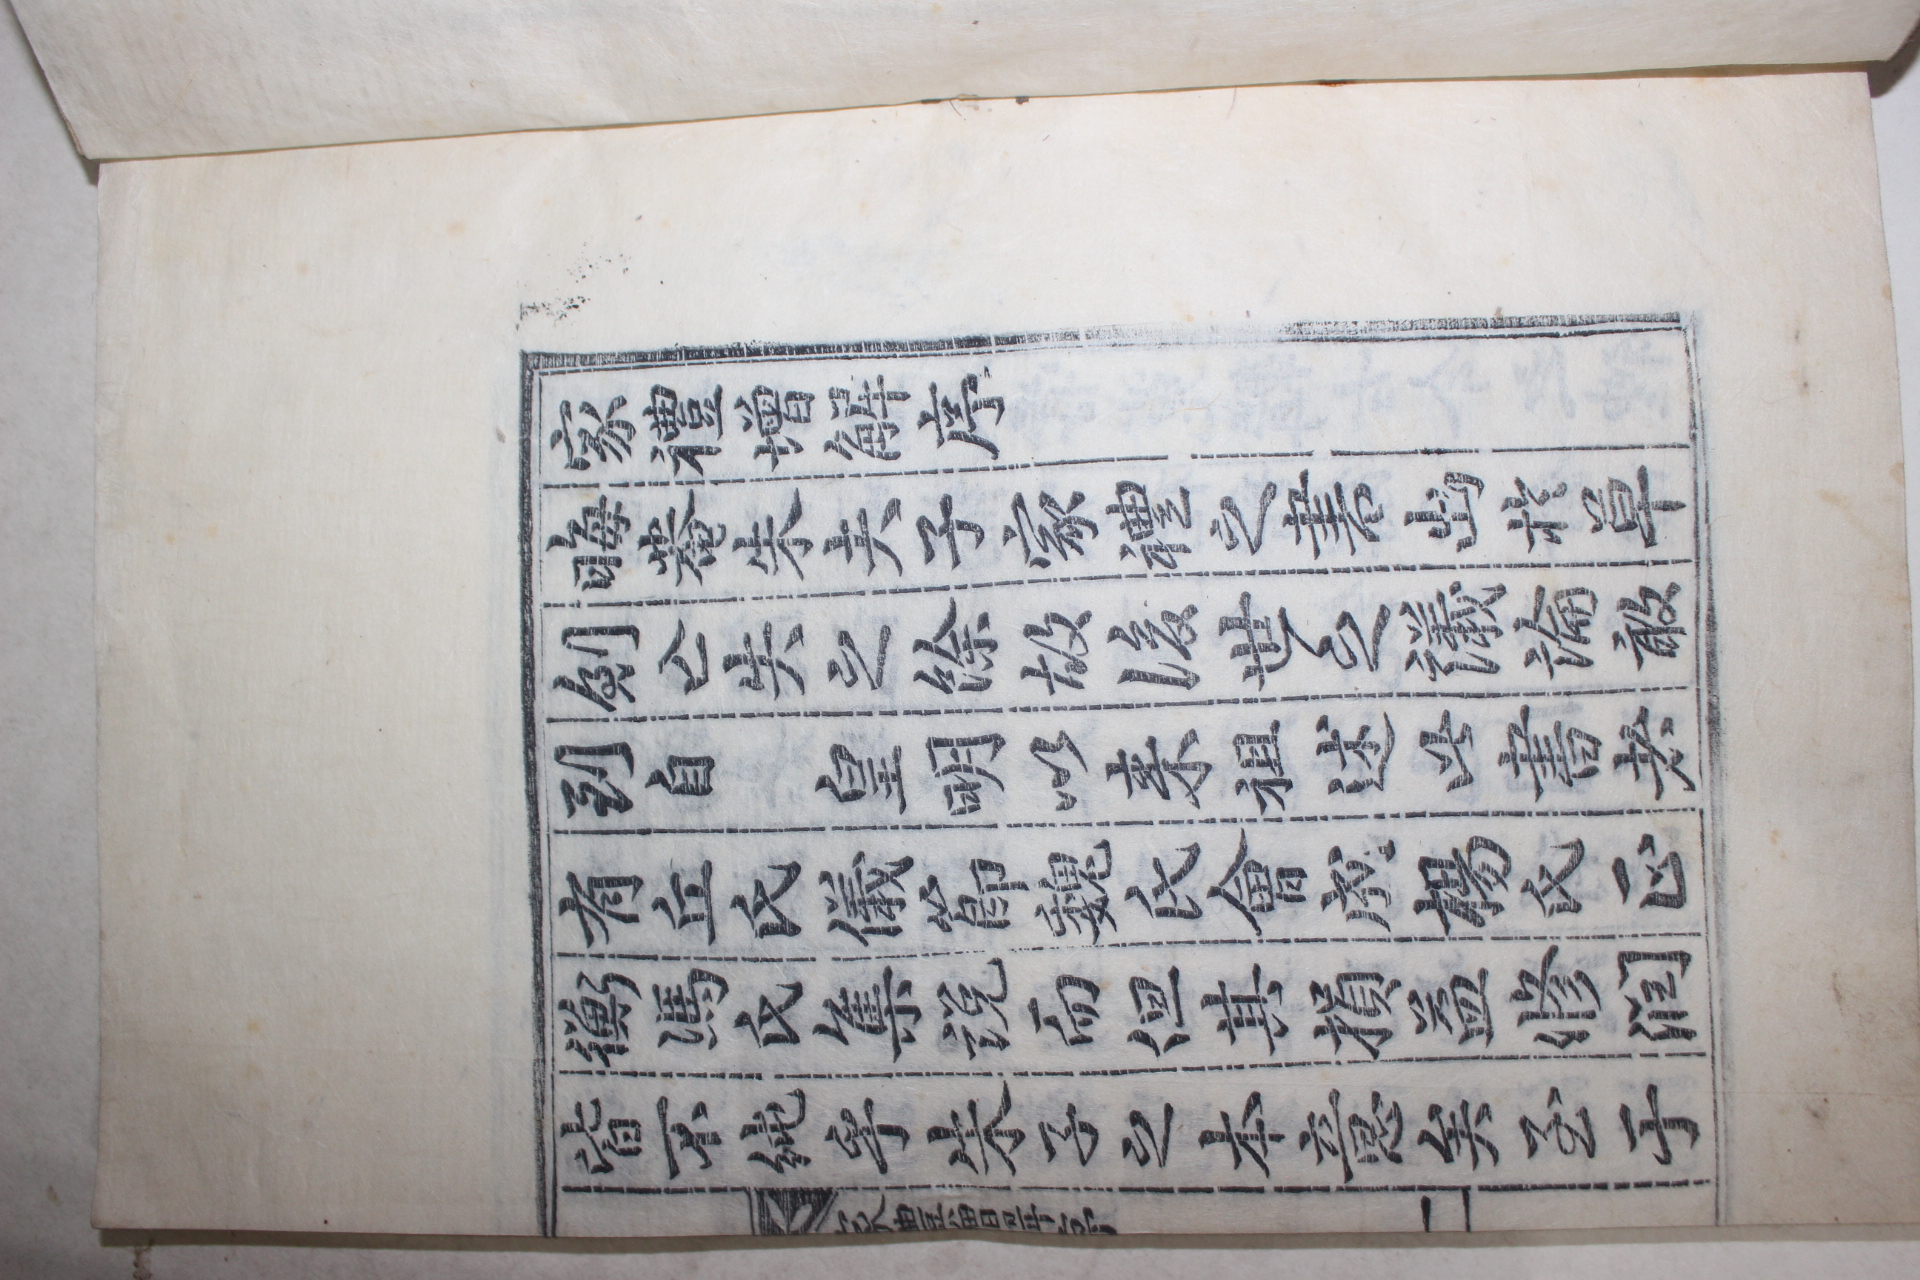 家禮增解序
晦菴朱夫子家禮之書出於草
創亡失之餘故後世之議論敢
到自 皇明以来祖述此書矣
有丘氏儀節魏氏會成楊氏正
衡馮氏集說而但其損益修潤
皆不純乎朱子之本意矣至于
家禮增解序